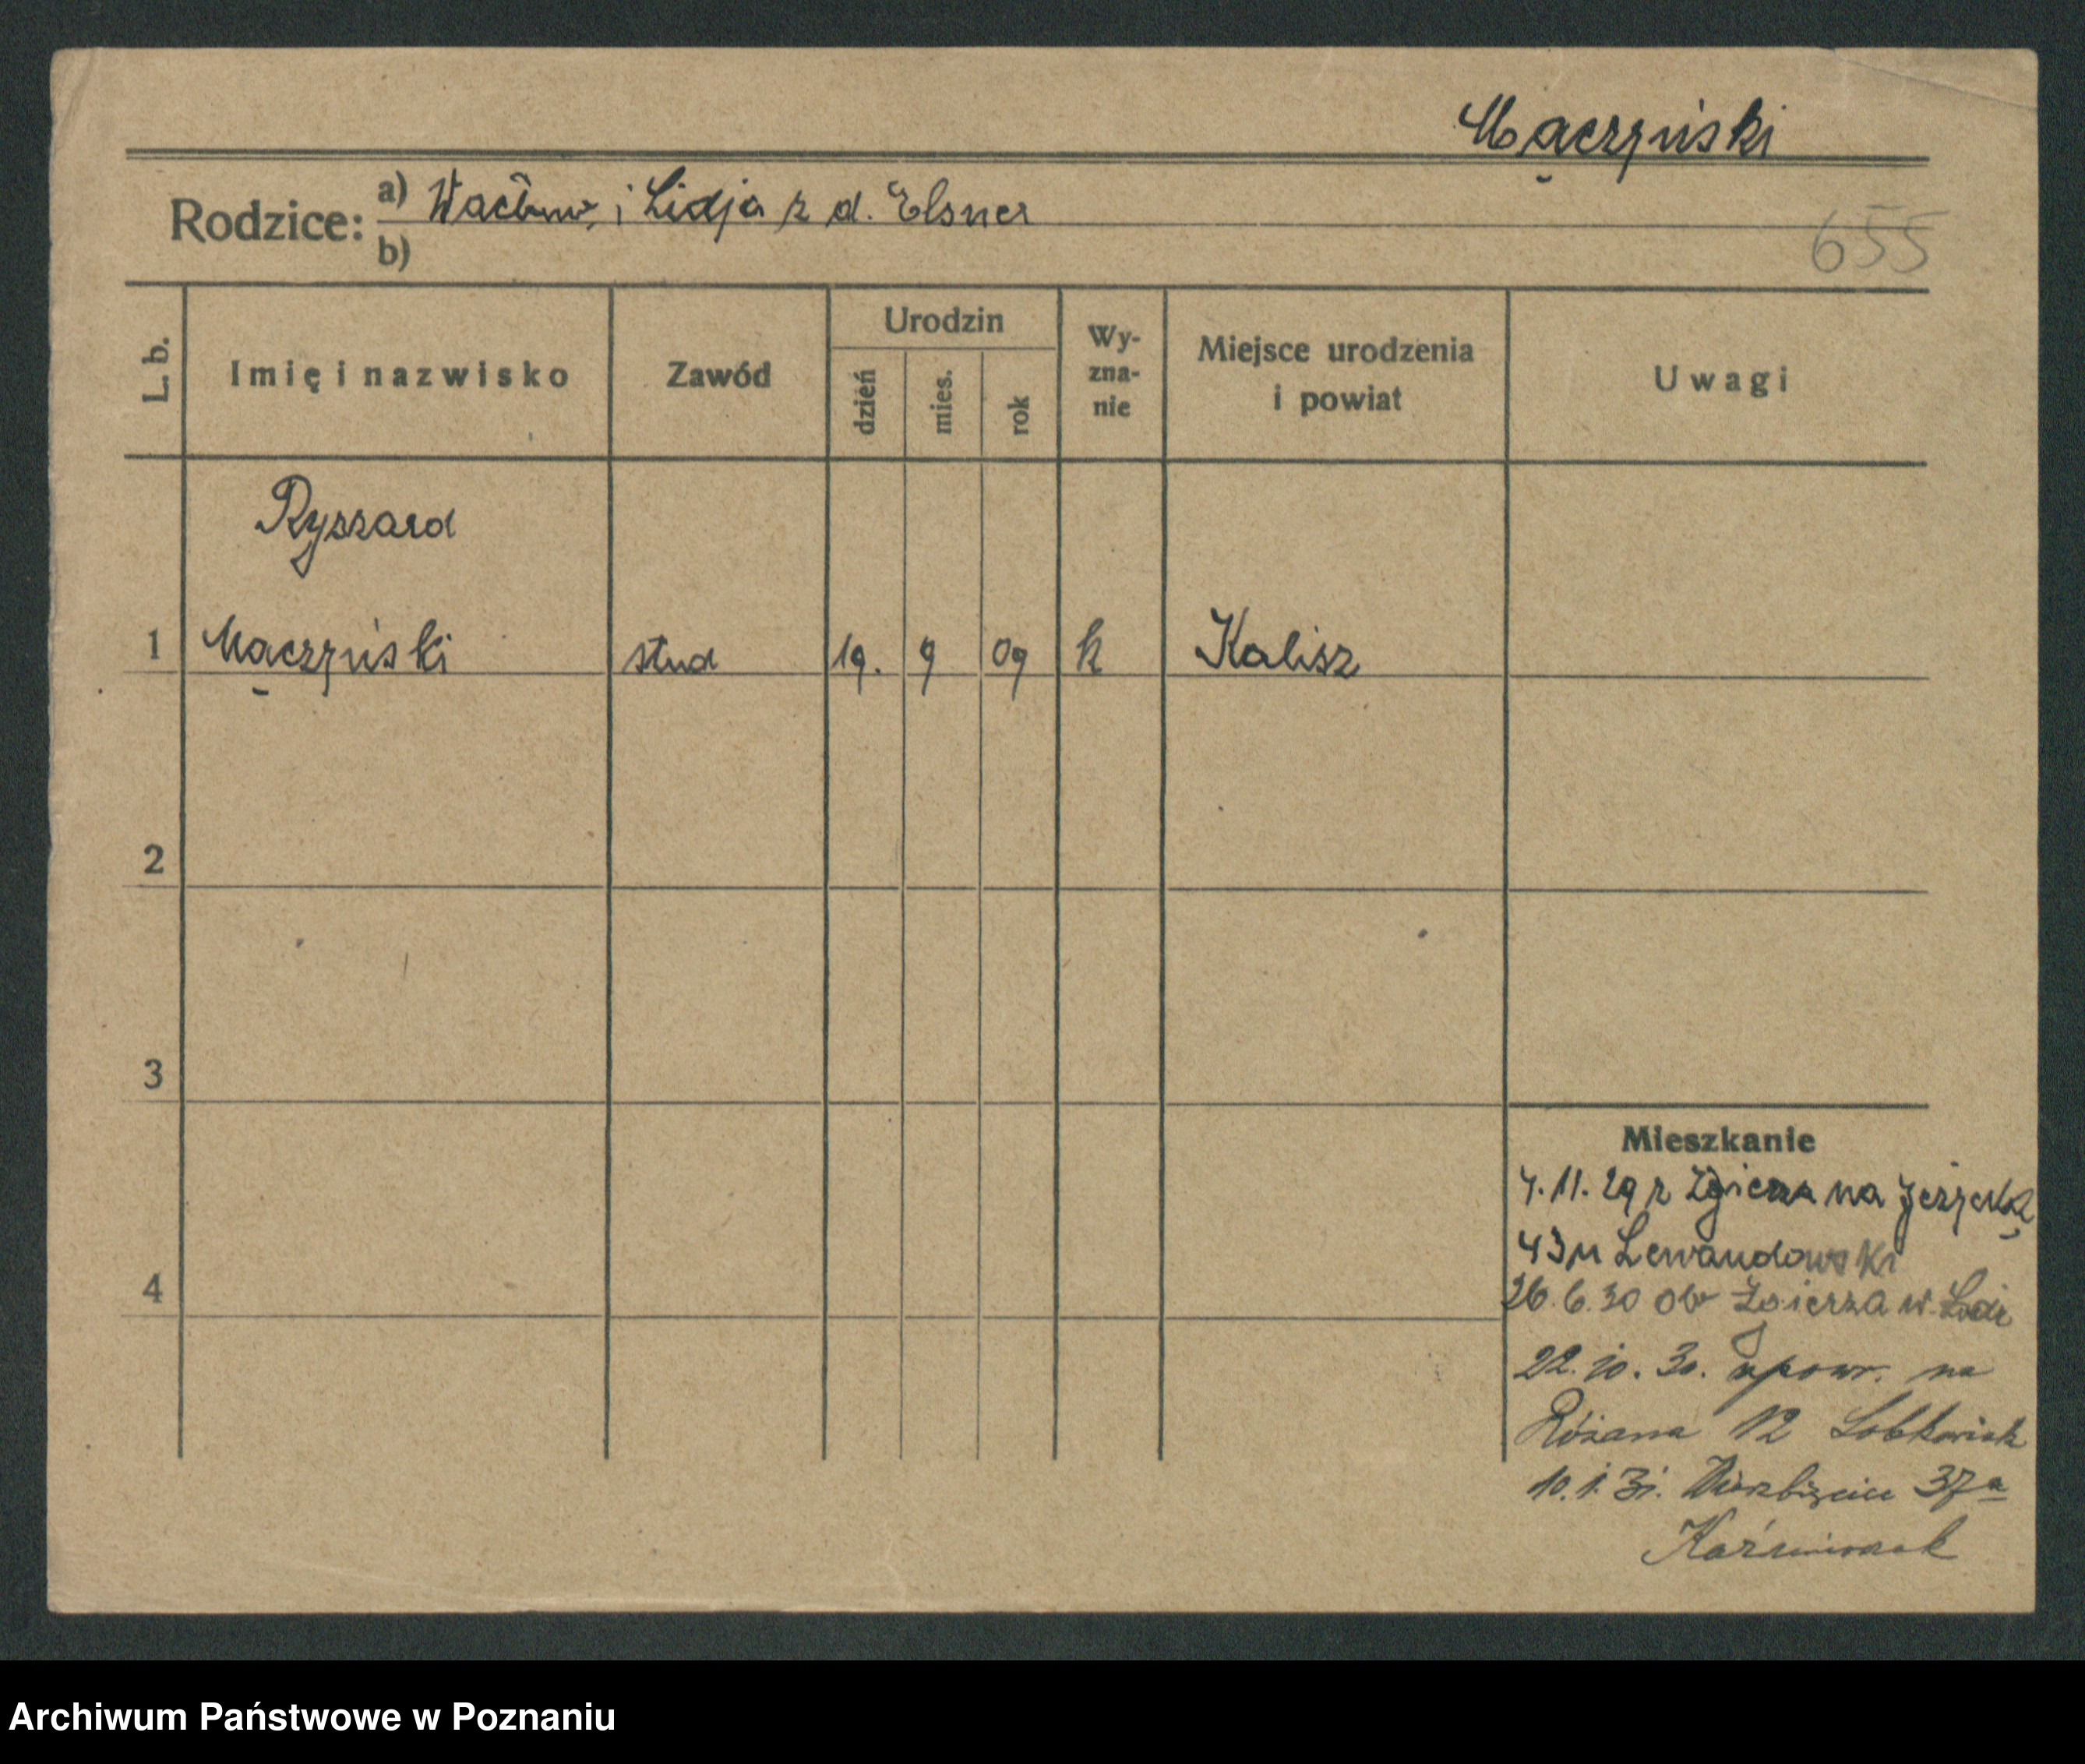 Mączyński
Rodzice: a) Wacław i Lidja z d. Elsner
b)
655
L. b.
Imię i nazwisko
Zawód
Urodzin
dzień
mies.
rok
Wy-
zna-
nie
Miejsce urodzenia
i powiat
Uwagi
Ryszard
1 Mączyński stud 19. 9 09 k Kalisz
2
3
4
Mieszkanie
4.11.29 z Zgierza na Jeżycką
43 u Lewandowski
26.6.30 do Zgierza w. Łódz
22.10.30. powr. na
Różana 12
10.1.31. Wierzbięcice 37a
Kaźmierczak
Archiwum Państwowe w Poznaniu